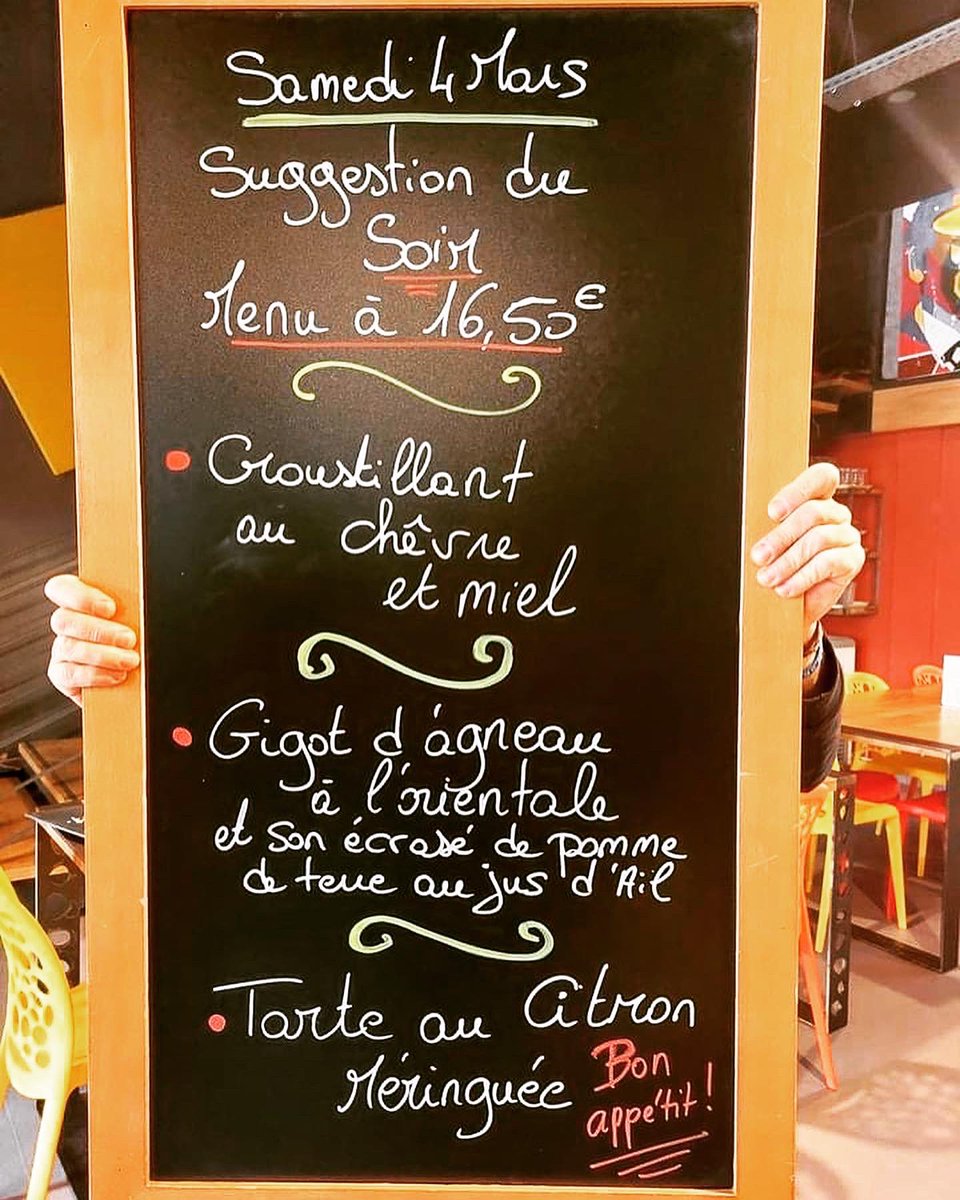 Samedi 4 Mars
Suggestion du
Soir
Menu à 16,50€
Croustillant
au chêvre
et miel
Gigot d'agneau
à l'orientale
et son écrasé de pomme
de terre au jus d'Ail
Tarte au Citron
Méringuée
Bon
appétit!